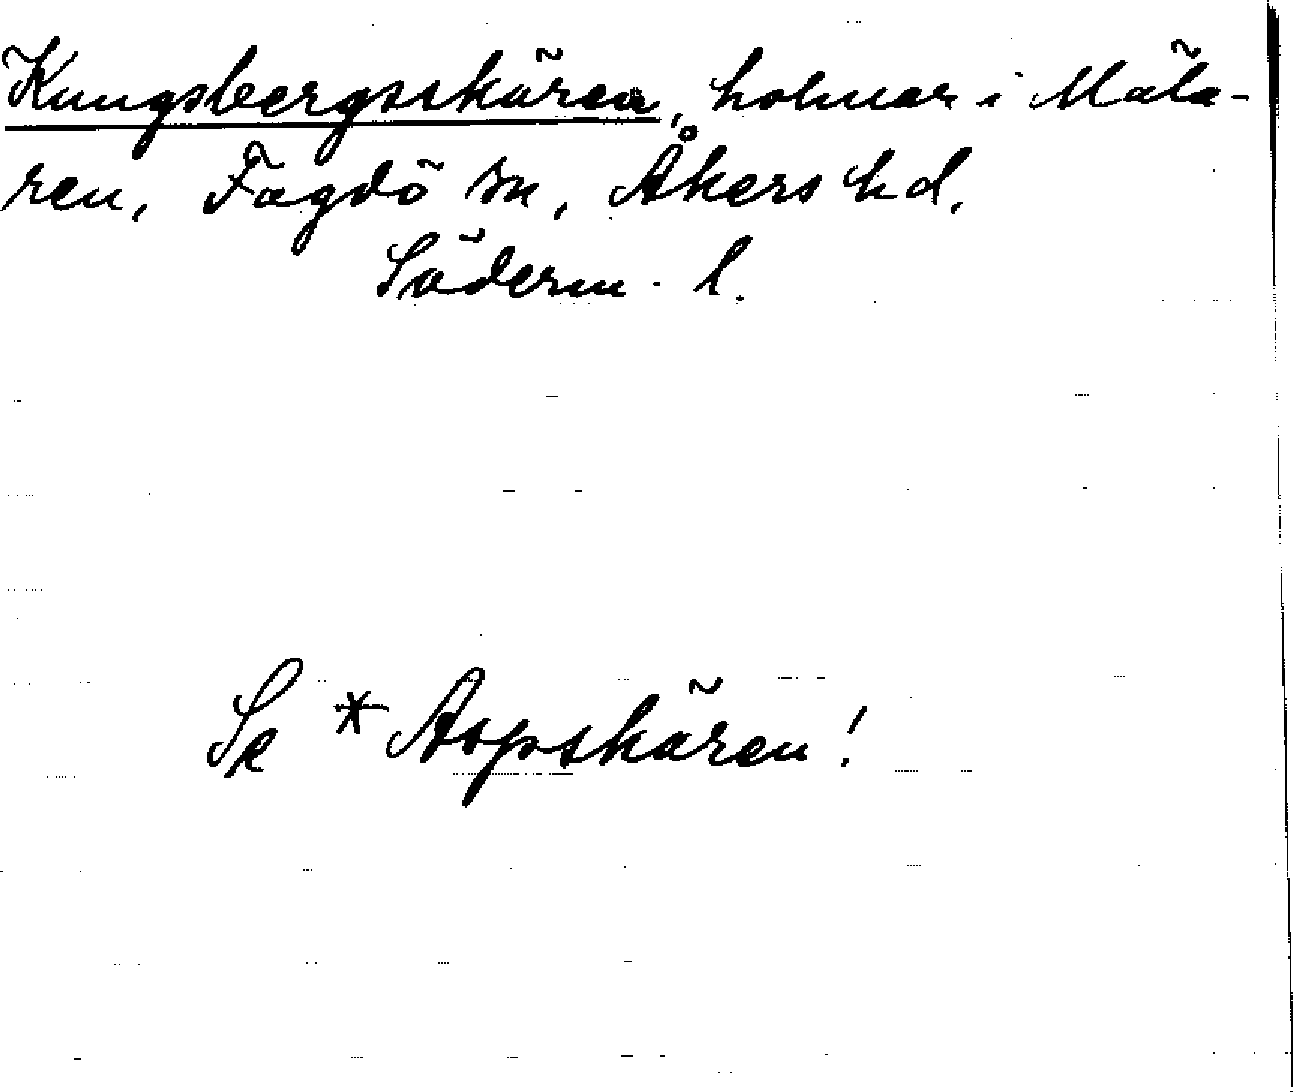 Kungsbergsskären, holmar i Mäla-
ren, Fogdö sn, Åkers hd,
Söderm. l.
Se *Aspskären!